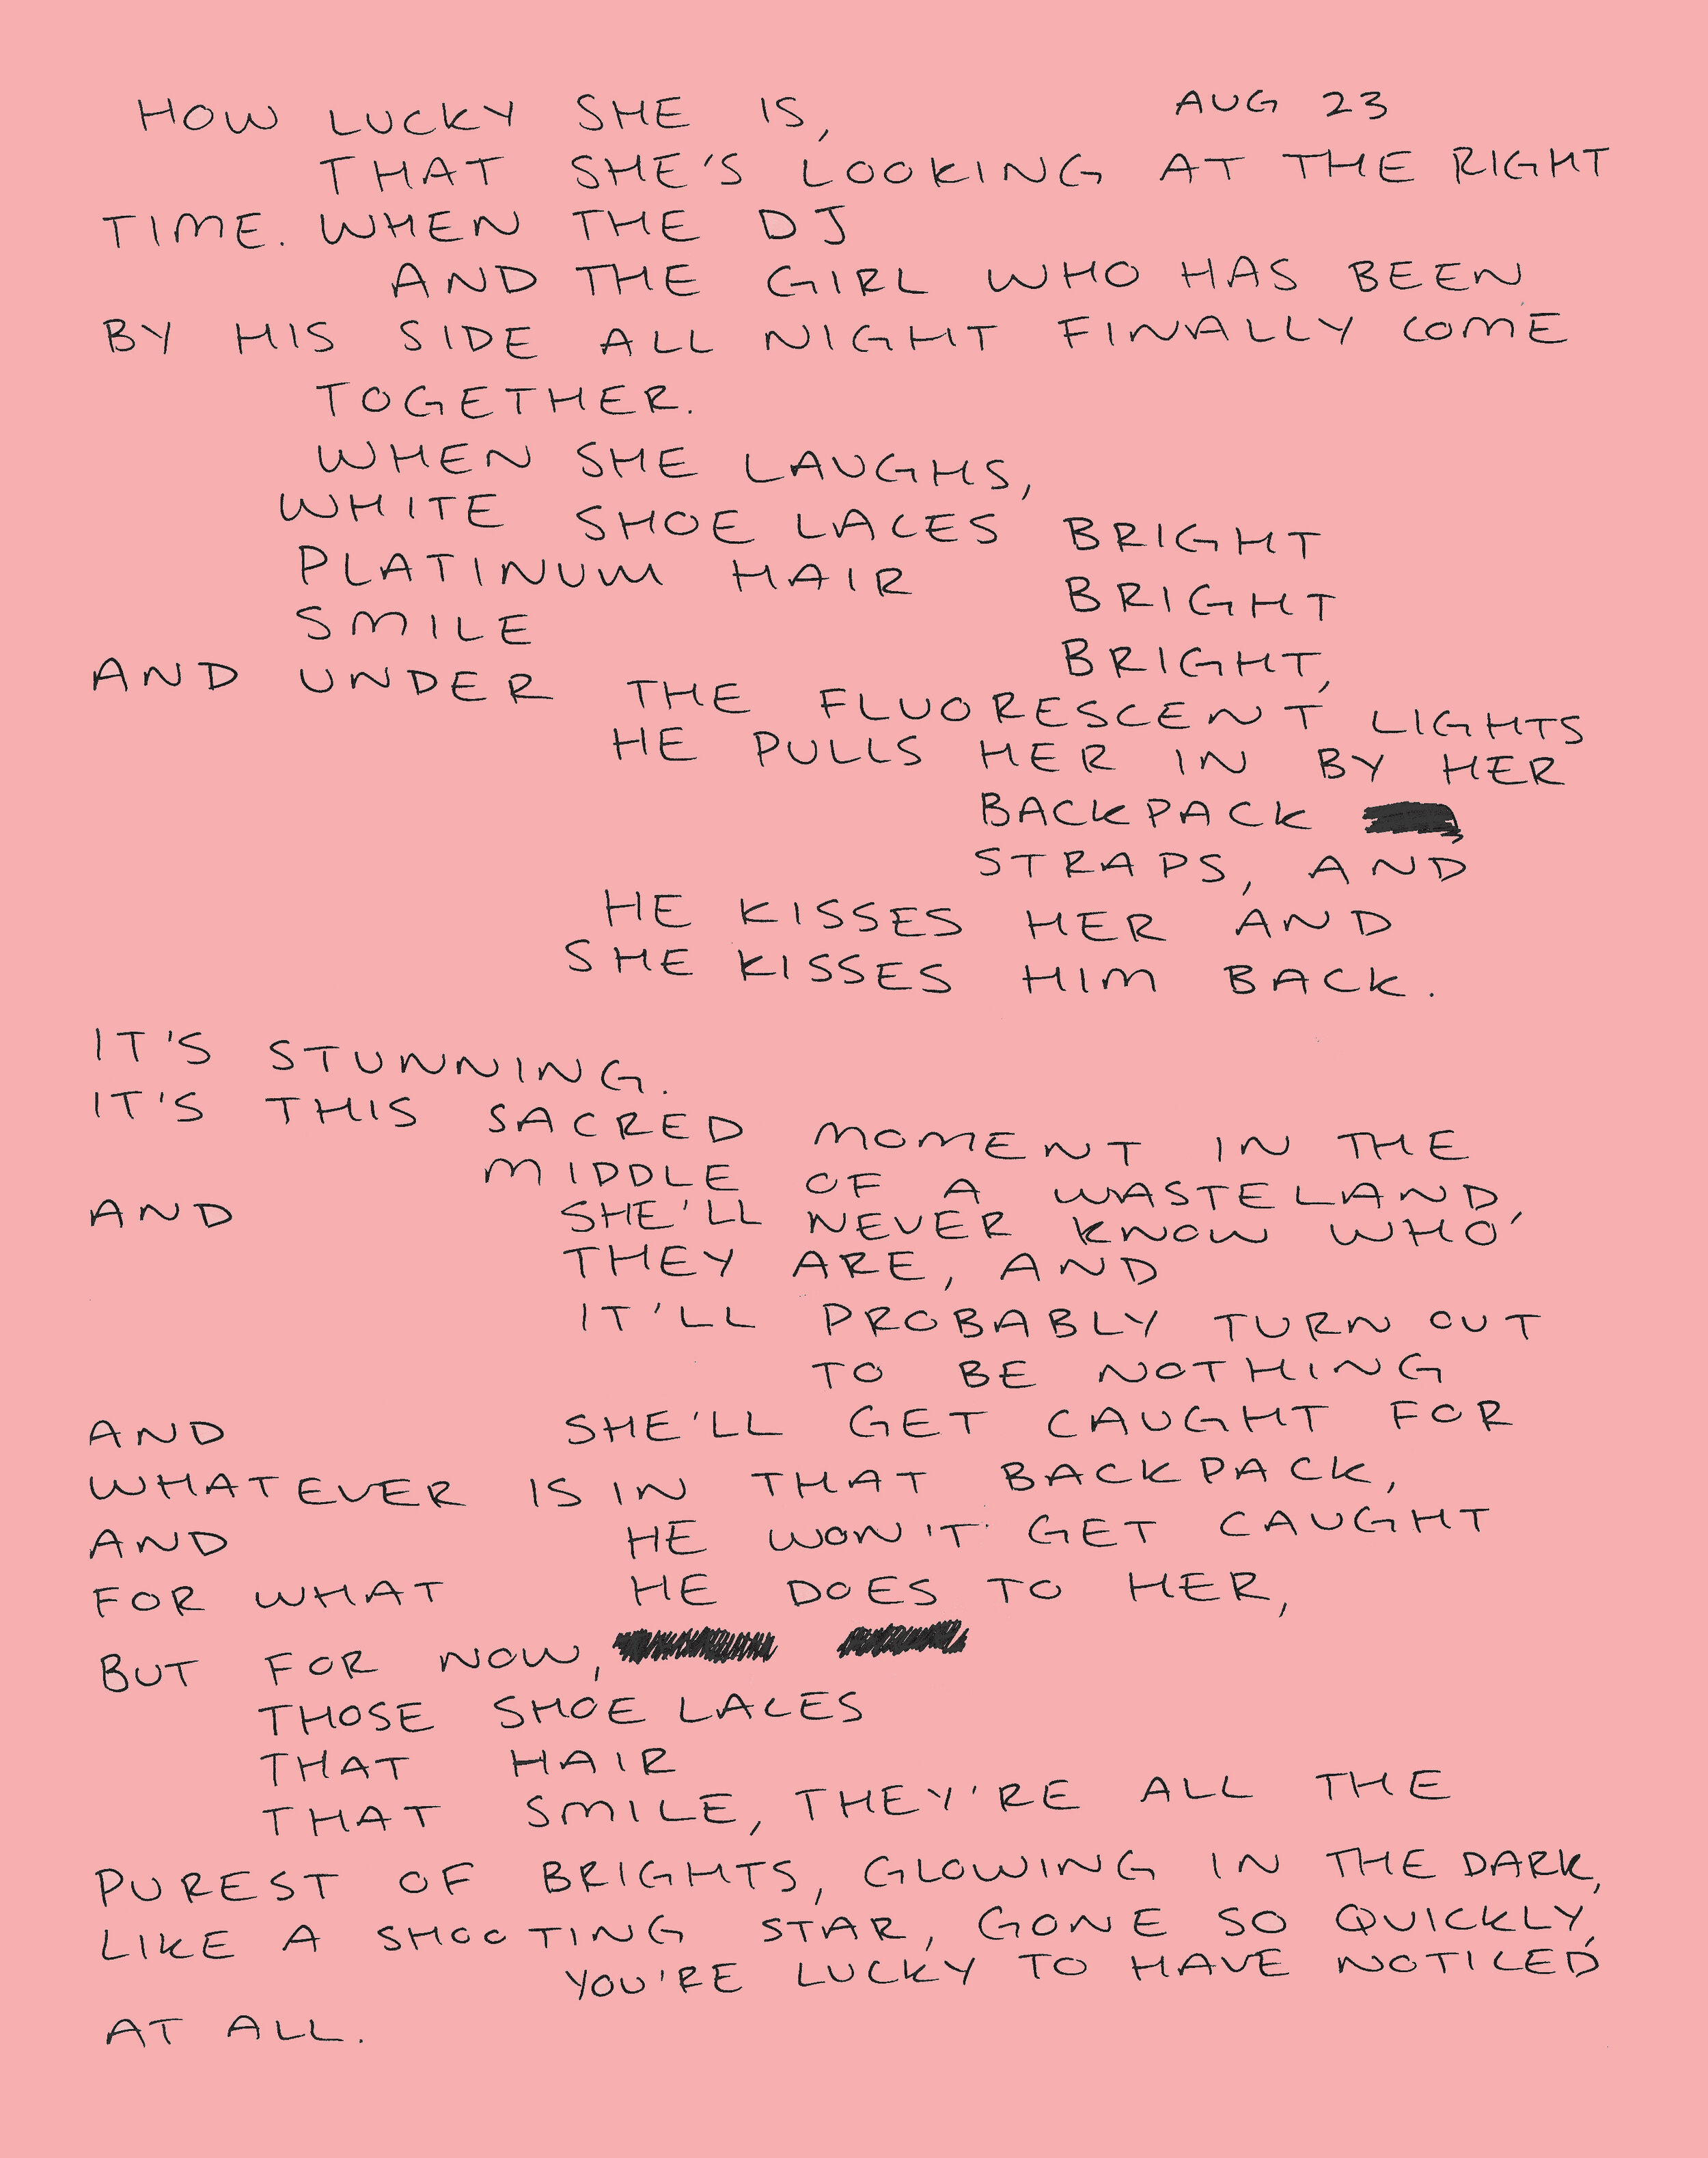 HOW LUCKY SHE IS, AUG 23
THAT SHE'S LOOKING AT THE RIGHT
TIME. WHEN THE DJ
AND THE GIRL WHO HAS BEEN
BY HIS SIDE ALL NIGHT FINALLY COME
TOGETHER.
WHEN SHE LAUGHS,
WHITE SHOE LACES BRIGHT
PLATINUM HAIR BRIGHT
SMILE BRIGHT,
AND UNDER THE FLUORESCENT LIGHTS
HE PULLS HER IN BY HER
BACKPACK
STRAPS, AND
HE KISSES HER AND
SHE KISSES HIM BACK.
IT'S STUNNING.
IT'S THIS SACRED MOMENT IN THE
MIDDLE OF A WASTELAND,
AND SHE'LL NEVER KNOW WHO
THEY ARE, AND
IT'LL PROBABLY TURN OUT
TO BE NOTHING
AND SHE'LL GET CAUGHT FOR
WHATEVER IS IN THAT BACKPACK,
AND HE WON'T GET CAUGHT
FOR WHAT HE DOES TO HER,
BUT FOR NOW,
THOSE SHOE LACES
THAT HAIR
THAT SMILE, THEY'RE ALL THE
PUREST OF BRIGHTS, GLOWING IN THE DARK,
LIKE A SHOOTING STAR, GONE SO QUICKLY,
YOU'RE LUCKY TO HAVE NOTICED
AT ALL.